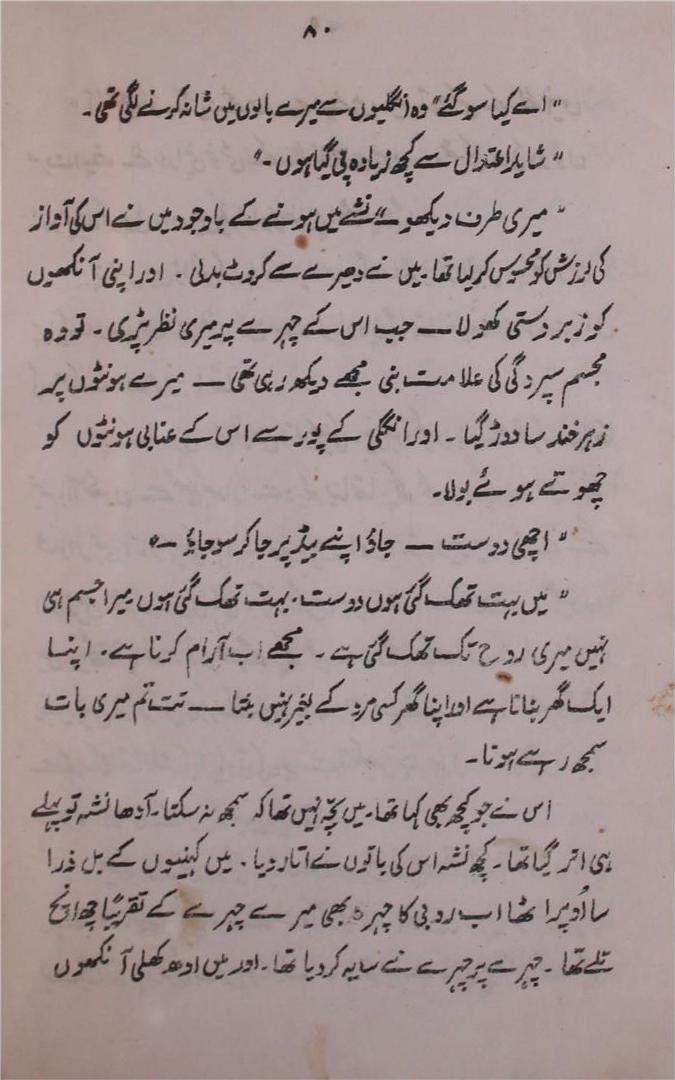 ۸۰
"اے کیا سو گئے" وہ انگلیوں سے میرے بالوں میں شانہ کرنے لگی تھی۔
"شاید اعتدال سے کچھ زیادہ پی گیا ہوں۔"
"میری طرف دیکھو" نشے میں ہونے کے باوجود میں نے اس کی آواز
کی لرزش کو محسوس کر لیا تھا۔ میں نے دھیرے سے کروٹ بدلی۔ اور اپنی آنکھوں
کو زبردستی کھولا — جب اس کے چہرے پر میری نظر پڑی۔ تو وہ
مجسم سپردگی کی علامت بنی مجھے دیکھ رہی تھی — میرے ہونٹوں پر
زہر خند سا دوڑ گیا۔ اور انگلی کے پور سے اس کے عنابی ہونٹوں کو
چھوتے ہوئے بولا۔
"اچھی دوست — جاؤ اپنے بیڈ پر جا کر سو جاؤ —"
"میں بہت تھک گئی ہوں دوست۔ بہت تھک گئی ہوں میرا جسم ہی
نہیں میری روح تک تھک گئی ہے۔ مجھے اب آرام کرنا ہے۔ اپنا
ایک گھر بنانا ہے اور اپنا گھر کسی مرد کے بغیر نہیں بنتا — تت تم میری بات
سمجھ رہے ہو نا۔
اس نے جو کچھ بھی کہا تھا۔ میں بچہ نہیں تھا کہ سمجھ نہ سکتا۔ آدھا نشہ تو پہلے
ہی اتر گیا تھا۔ کچھ نشہ اس کی باتوں نے اتار دیا۔ میں کہنیوں کے بل ذرا
سا اُوپر اٹھا اب روبی کا چہرہ بھی میرے چہرے کے تقریباً چھ انچ
تلے تھا۔ چہرے پر چہرے نے سایہ کر دیا تھا۔ اور میں ادھ کھلی آنکھوں